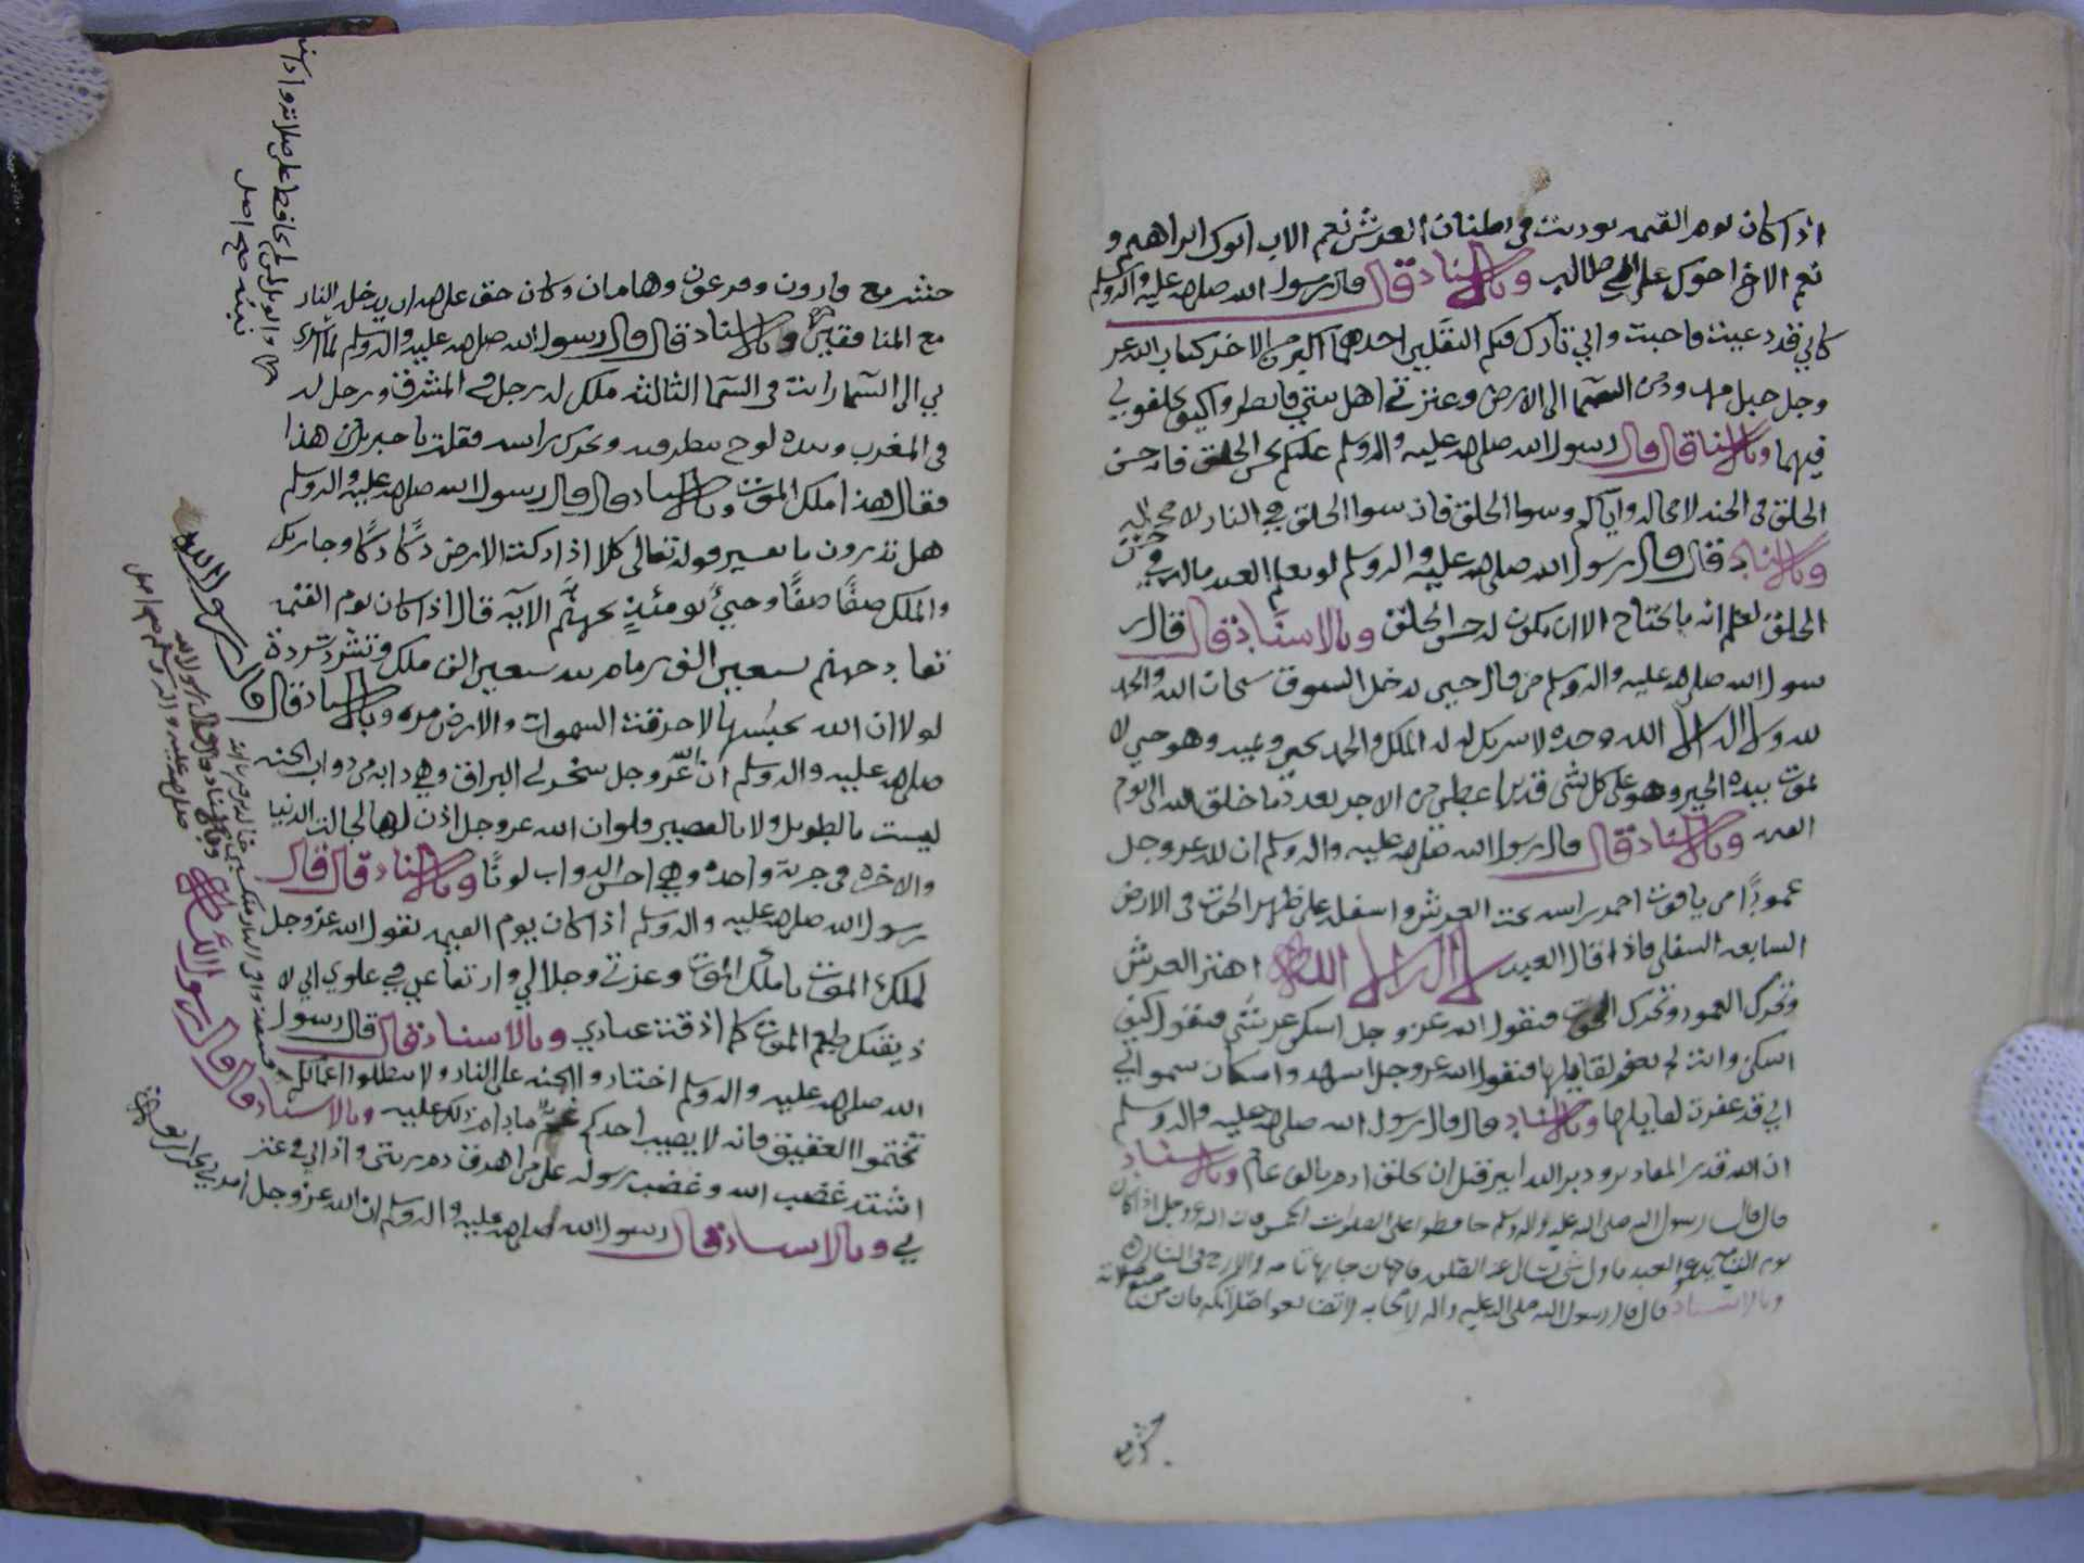 اذا كان يوم القيمه نوديت من بطنان العرش نعم الاب ابوك ابراهيم و
نعم الاخ اخوك علي بن ابي طالب وبالاسناد قال قال رسول الله صلى الله عليه واله وسلم
كاني قد دعيت فاجبت واني تارك فيكم الثقلين احدهما اكبر من الاخر كتاب الله عز
وجل حبل ممدود من السما الى الارض وعترتي اهل بيتي فانظروا كيف تخلفوني
فيهما وبالاسناد قال قال رسول الله صلى الله عليه واله وسلم عليكم بحسن الخلق فان حسن
الخلق في الجنه لا محاله واياكم وسوا الخلق فان سوا الخلق في النار لا محاله
وبالاسناد قال قال رسول الله صلى الله عليه واله وسلم لو يعلم العبد ماله في حسن
الخلق لعلم انه يحتاج الا ان يكون له حسن الخلق وبالاسناد قال قال ر
سول الله صلى الله عليه واله وسلم من قال حين يدخل السوق سبحان الله والحمد
لله ولا اله الا الله وحده لا شريك له له الملك وله الحمد يحيي ويميت وهو حي لا
يموت بيده الخير وهو على كل شي قدير اعطي من الاجر بعدد ما خلق الله الى يوم
القيمه وبالاسناد قال قال رسول الله صلى الله عليه واله وسلم ان لله عز وجل
عمودًا من ياقوت احمر راسه تحت العرش واسفله على ظهر الحوت في الارض
السابعه السفلى فاذا قال العبد لا اله الا الله اهتز العرش
وتحرك العمود وتحرك الحوت فيقول الله عز وجل اسكن عرشي فيقول كيف
اسكن وانت لم تغفر لقايلها فيقول الله عز وجل اشهدوا سكان سمواتي
اني قد غفرت لقايلها وبالاسناد قال قال رسول الله صلى الله عليه واله وسلم
ان الله قدر المقادير ودبر التدابير قبل ان يخلق ادم بالفي عام وبالاسناد
قال قال رسول الله صلى الله عليه واله وسلم حافظوا على الصلوات الخمس فان الله عز وجل اذا كان
يوم القيامه يدعو العبد فاول شي يسال عنه الصلوه فان جا بها تامه والا زج في النار
وبالاسناد قال قال رسول الله صلى الله عليه واله لاصحابه لا تضيعوا صلاتكم فان من ضيع صلاته
حشره
حشر مع قارون وفرعون وهامان وكان حق على الله ان يدخله النار
مع المنافقين وبالاسناد قال قال رسول الله صلى الله عليه واله وسلم لما اسري
بي الى السما رايت في السما الثالثه ملك له رجل في المشرق ورجل له
في المغرب وبيده لوح ينظر فيه ويحرك راسه فقلت يا جبريل من هذا
فقال هذا ملك الموت وبالاسناد قال قال رسول الله صلى الله عليه واله وسلم
هل تدرون ما تفسير قوله تعالى كلا اذا دكت الارض دكًا دكًا وجا ربك
والملك صفًا صفًا وجيء يومئذٍ بجهنم الايه قال اذا كان يوم القيمه
تقاد جهنم بسبعين الف زمام بيد سبعين الف ملك وتشرد شردة
لولا ان الله يحبسها لاحرقت السموات والارض وبالاسناد قال قال رسول الله
صلى الله عليه واله وسلم ان الله عز وجل سخر لي البراق وهي دابه من دواب الجنه
ليست بالطويل ولا بالقصير فلو ان الله عز وجل اذن لها لجالت الدنيا
والاخره في جرية واحده وهي احسن الدواب لونًا وبالاسناد قال قال
رسول الله صلى الله عليه واله وسلم اذا كان يوم القيمه يقول الله عز وجل
لملك الموت يا ملك الموت وعزتي وجلالي وارتفاعي في علوي اني لا
ذيقنك طعم الموت كما اذقت عبادي وبالاسناد قال قال رسول
الله صلى الله عليه واله وسلم اختاروا الجنه على النار ولا تبطلوا اعمالكم
تختموا بالعقيق فانه لا يصيب احدكم غم ما دام ذلك عليه وبالاسناد قال قال رسول الله
اشتد غضب الله وغضب رسوله على من اهرق دم ذريتي واذاني في عتر
تي وبالاسناد قال رسول الله صلى الله عليه واله وسلم ان الله عز وجل امرني
والويل لمن لم يحافظ على صلاته واداء
نبيه صح اصل
وبالاسناد قال قال رسول الله
صلى الله عليه واله وسلم صح اصل